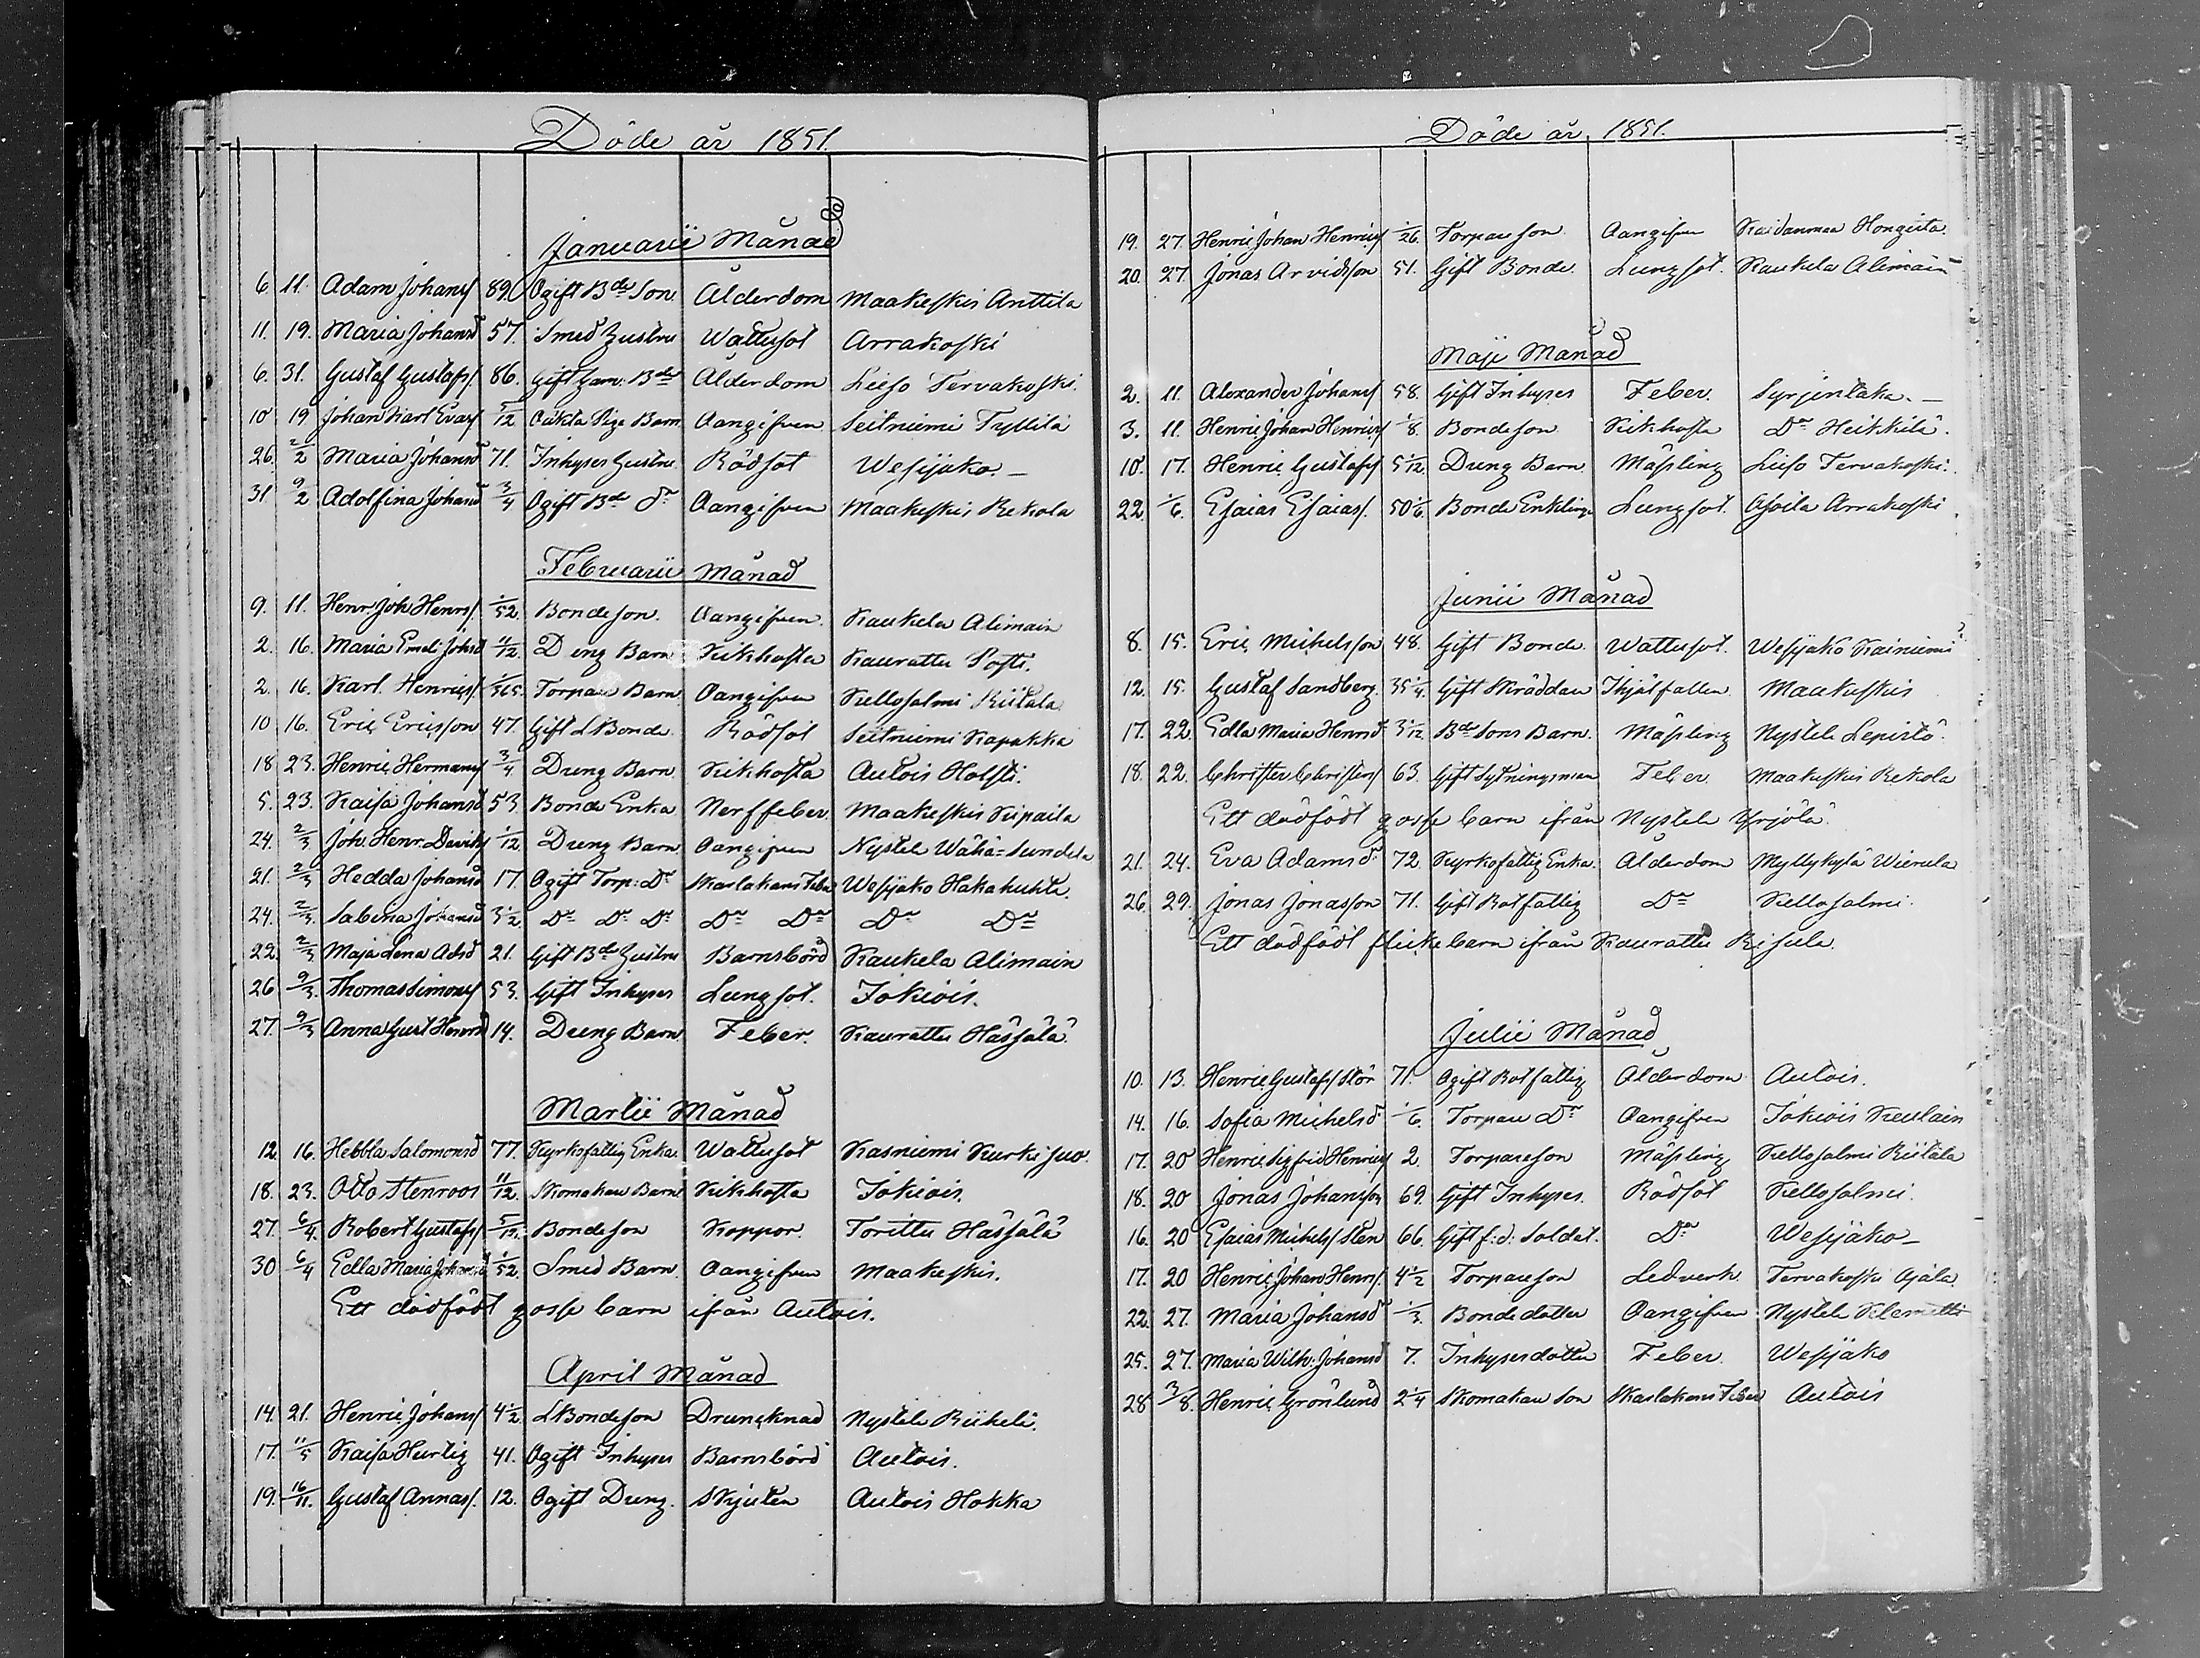 Döde år 1851.
Januarii Månad
6. 11. Adam Johans/ 89. Ogift Bde Son Ålderdom Maakeskis Anttila
11. 19. Maria Johansd 57. Smed Hustru Wattusot Arrakoski
6. 31. Gustaf Gustafs/ 86. Gift Gam: Bde Ålderdom Leiso Tervakoski
10 19 Johan Karl Evas/ 5/12 Oäkta Pige Barn Oangifven Seitniemi Tyllilä
26. 2/2 Maria Johansd 71. Inhyses Hustru Rödsot Wesijako. —
31 9/2 Adolfina Johansd 3/4 Ogift Bde dr Oangifven Maakeskis Rekola
Februarii Månad
9. 11. Henr. Joh Henrs/. 1/52. Bondeson. Oangifven. Kaukela Alimain
2. 16. Maria Emel: Johsd 11/12. Dreng Barn Kikhosta Kaurattu Posti.
2. 16. Karl Henrics/ 1/365. Torpare Barn Oangifven Kellosalmi Riitala.
10 16. Eric Ericsson 47. Gift LBonde. Rödsot Seitniemi Kapakka
18 23. Henric Hermans/ 3/4 Dreng Barn. Kikhosta Autois Holsti.
5. 23. Kaisa Johansd 53. Bonde Enka Nerffeber Maakeskis Sipaila
24. 2/3 Joh. Henr. Davids/ 1/12 Dreng Barn. Oangifven Nystelä Wähä=Sundela
21. 2/3 Hedda Johansd 17. Ogift Torp: Dr Skarlakans Feber Wesijako Hakahuhta.
24. 2/3. Sabina Johansd 3 1/2. Do Do Do Do Do Do Do
22 2/3 Maja Lena Adsd 21. Gift Bde Hustru Barnsbörd Kaukela Alimain
26 9/3. Thomas Simons/ 53. Gift Inhyses Lungsot. Jokiois.
27. 9/3 Anna Gust Henrsd 14. Dreng Barn Feber. Kaurattu Hassala
Martii Månad
12. 16. Hebbla Salomonsd 77. Kyrkofattig Enka. Wattusot Kasniemi Kurkisuo.
18. 23. Otto Stenroos 11/12. Skomakare Barn Kikhosta Jokiois.
27. 6/4. Robert Gustafs/ 5/12. Bondeson Koppor. Torittu Hassala
30 6/4 Edla Maria Johansd 1/52. Smed Barn. Oangifven Maakeskis.
Ett dödfödt gosse barn ifrån Autois.
April Månad
14. 21. Henric Johans/ 4 1/2. LBondeson Drunknad Nystelä Riihelä.
17. 11/5 Kaisa Hurtig 41. Ogift Inhyses Barnsbörd Autois.
19. 16/11. Gustaf Annas/. 12. Ogift Dreng. Skjuten Autois Hokka
Döde år 1851.
19. 27. Henric Johan Henrics/ 1/26. Torpare son. Oangifven Kaidanmaa Hongista
20. 27. Jonas Arvidsson 51. Gift Bonde. Lungsot. Kaukela Alimain
Maji Månad
2. 11. Alexander Johans/ 58. Gift Inhyses Feber. Syrjentaka. —
3. 11. Henric Johan Henrics/ 1/8. Bondeson Kikhosta Do Heikkilä.
10. 17. Henric Gustafs/ 5 1/12. Dreng Barn Mässling Leiso Tervakoski.
22. 1/6. Esaias Esaias/. 50 1/6. Bonde Enkling Lungsot. Asoila Arrakoski
Junii Månad
8. 15. Eric Michelsson 48. Gift Bonde. Wattusot. Wesijako Kainiemi
12. 15. Gustaf Sandberg. 35 1/4. Gift Skräddare Ihjälfallen Maakeskis
17. 22. Edla Maria Henrsd. 3 1/12. Bde Sons Barn. Mässling Nystelä Lepistö.
18. 22. Christer Christers/ 63. Gift Sytningsman Feber Maakeskis Rekola
Ett dödfödt gosse barn ifrån Nystelä Yrjölä.
21. 24. Eva Adamsd. 72. Kyrkofattig Enka. Ålderdom Myllykylä Wierula
26. 29. Jonas Jonasson 71. Gift Rotfattig Do Kellosalmi.
Ett dödfödt flicke barn ifrån Kaurattu Risula.
Julii Månad
10. 13. Henric Gustafs/ Stör 71. Ogift Rotfattig Ålderdom Autois.
14. 16. Sofia Michelsd. 1/6. Torpare Dr Oangifven Jokiois Keulain
17. 20 Henric Sigfrid Henrics/ 2. Torpareson Mässling Kellosalmi Riitala
18. 20 Jonas Johansson 69. Gift Inhyses. Rödsot Kellosalmi.
16. 20 Esaias Michels/ Sten 66. Gift f:d: Soldat. Do Wesijako —
17. 20 Henric Johan Henrs/. 4 1/2 Torpareson Ledverk Tervakoski Ajala
22. 27. Maria Johansd 1/3. Bondedotter Oangifven Nystelä Klemettis
25. 27. Maria Wilh: Johansd 7. Inhysesdotter Feber. Wesijako
28 3/8. Henric Grönlund 2 1/4 Skomakare Son Skarlakans Feber Autois